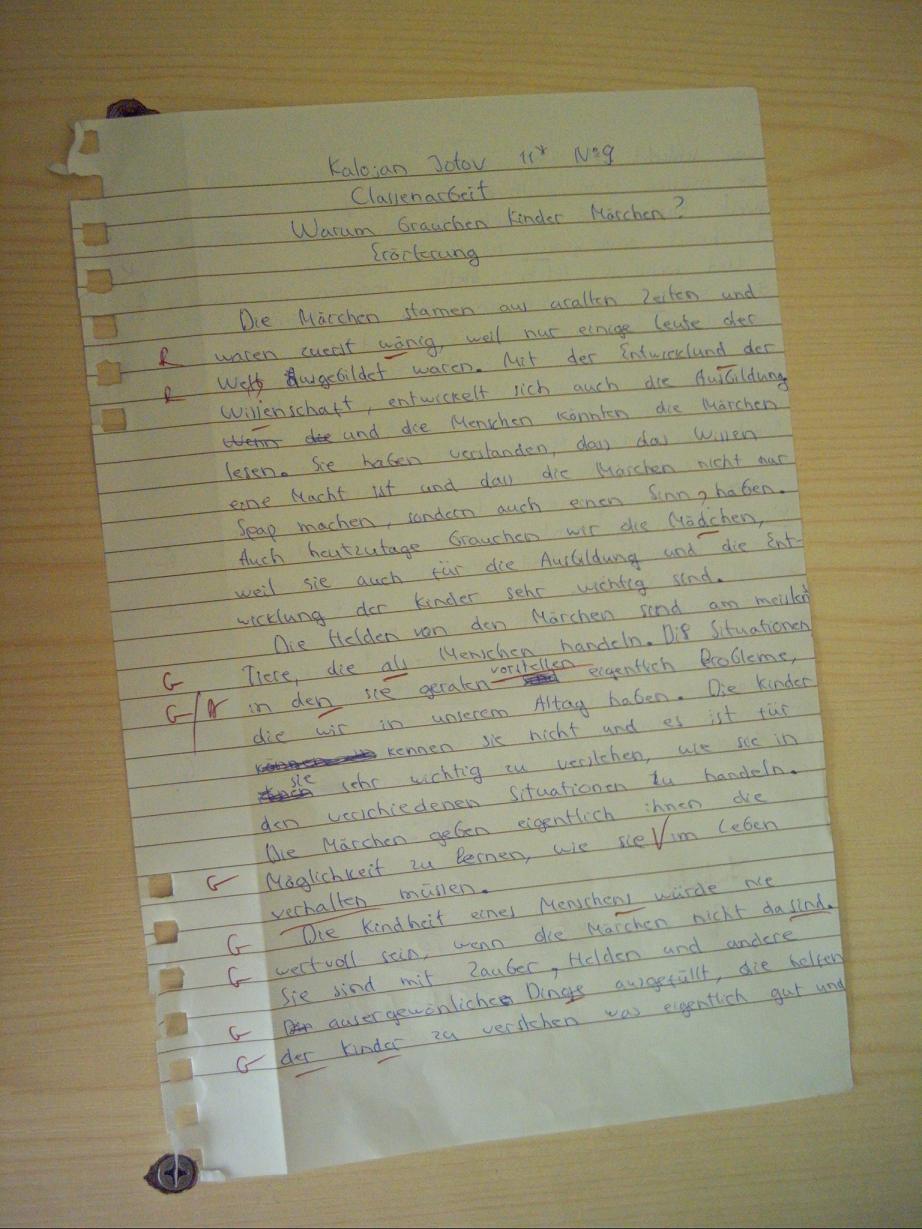 Kaloian Jotov 11 № 9
Classenarbeit
Warum brauchen Kinder Märchen?
Erörterung
Die Märchen stamen aus uralten Zeiten und
R waren zuerst wänig, weil nur einige Leute der
R Welt Ausgebildet waren. Mit der Entwicklund der
Wissenschaft, entwickelt sich auch die Ausbildung
und die Menschen könnten die Märchen
lesen. Sie haben verstanden, dass das Wissen
eine Macht ist und dass die Märchen nicht nur
Spap machen, sondern auch einen Sinn, haben.
Auch heutzutage brauchen wir die Mädchen,
weil sie auch für die Ausbildung und die Ent-
wicklung der Kinder sehr wichtig sind.
Die Helden von den Märchen sind am meisten
G Tiere, die als Menschen handeln. Die Situationen
G/A in den sie geraten vorstellen eigentlich Probleme,
die wir in unserem Altag haben. Die Kinder
kennen sie nicht und es ist für
sie sehr wichtig zu verstehen, wie sie in
den verschiedenen Situationen zu handeln.
Die Märchen geben eigentlich ihnen die
G Möglichkeit zu lernen, wie sie im Leben
verhalten müssen.
G Die Kindheit eines Menschens würde nie
G wertvoll sein, wenn die Märchen nicht da sind.
Sie sind mit Zauber, Helden und andere
G ausergewönliche Dinge ausgefüllt, die helfen
G der Kinder zu verstehen was eigentlich gut und